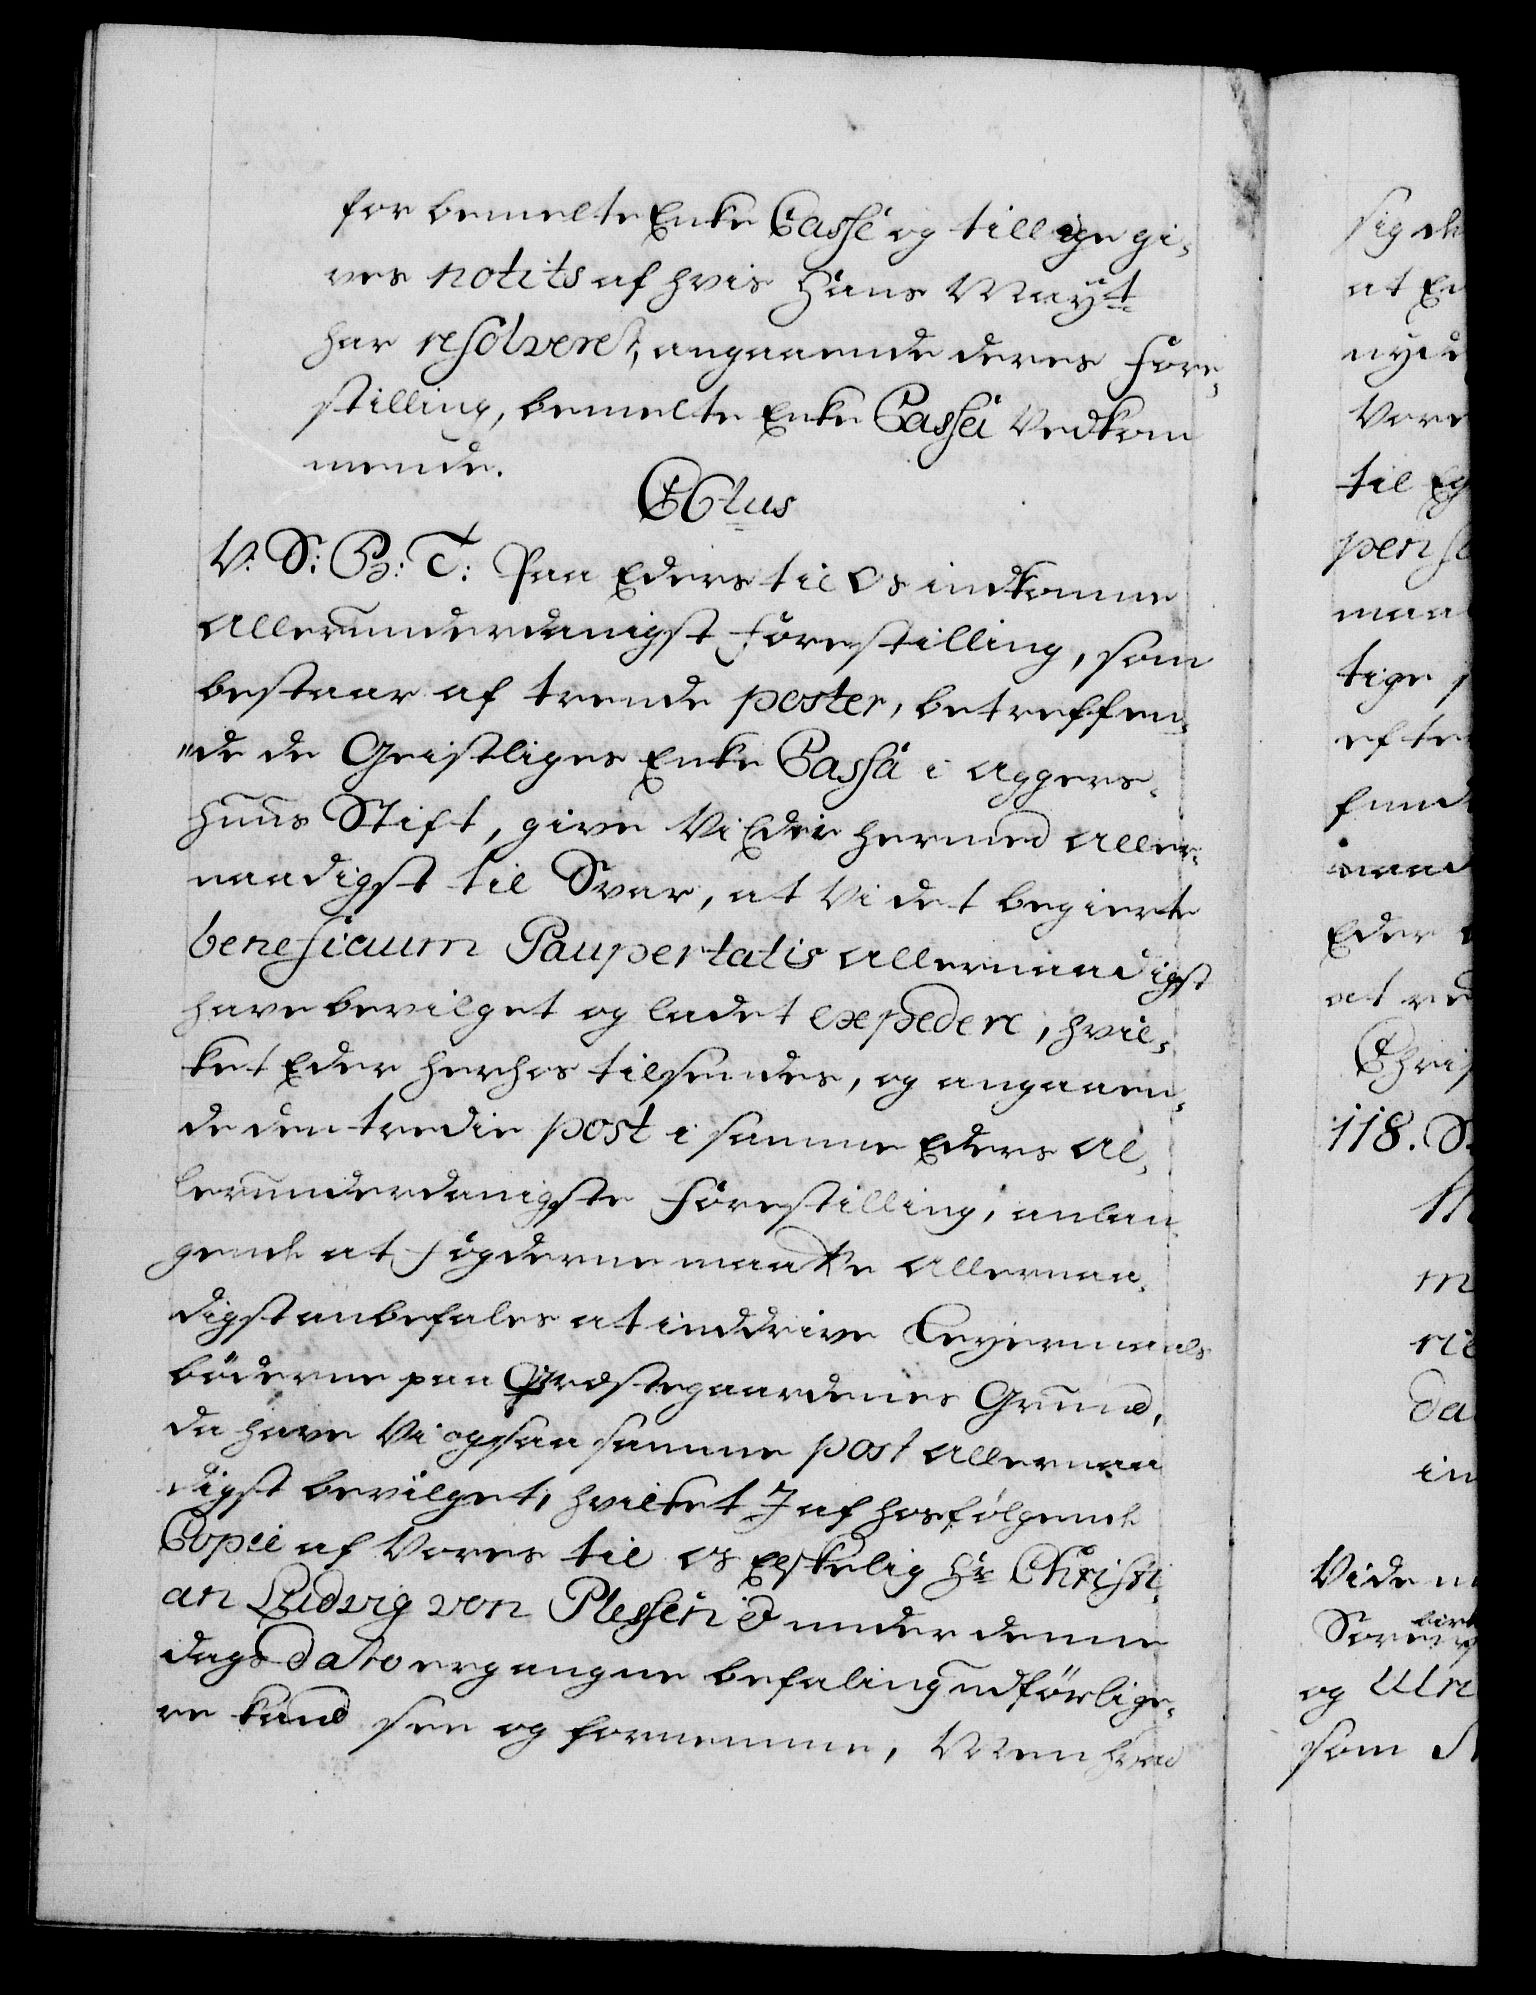 for bemelte Enke Casse og tillige gi-
ves notits af hvis Hans Mayt:
har resolveret, angaaende deres Fore-
stilling, bemelte Enke Casse Vedkom
mende.
V. S: B: T: Paa Eders til Os indkomne
Allerunderdanigst Forestilling, som
bestaar af trende poster, betreffen-
"de de Geistliges Enke Cassa i Aggers-
huus Stift, give Vi Eder hermed Aller-
naadigst til Svar, at Vi det begierte
beneficium Paupertatis Allernaadigst
have bevilget og ladet expedere, hvil-
ket Eder herhos tilsendes, og angaaen-
de den tredie post i samme Eders Al-
lerunderdanigste Forestilling, anlan-
gende at Fogderne maatte Allernaa-
digst anbefales at inddrive Leyermaals
böderne paa Præstegaardenes Grund,
da have Vi ogsaa samme post Allernaa
digst bevilget, hvilket I af hosfølgende
Copie af Vores til Os Elskelig Hr Christi-
an Ludvig von Plessen under denne
dags Dato ergangne befaling udförlige-
re kand see og fornemme, Men hvad
sig
at
nyde
Vore
til
maa
tige
efter
Eder
at
118. S
m
da
in
Vide
og Ulri
som S